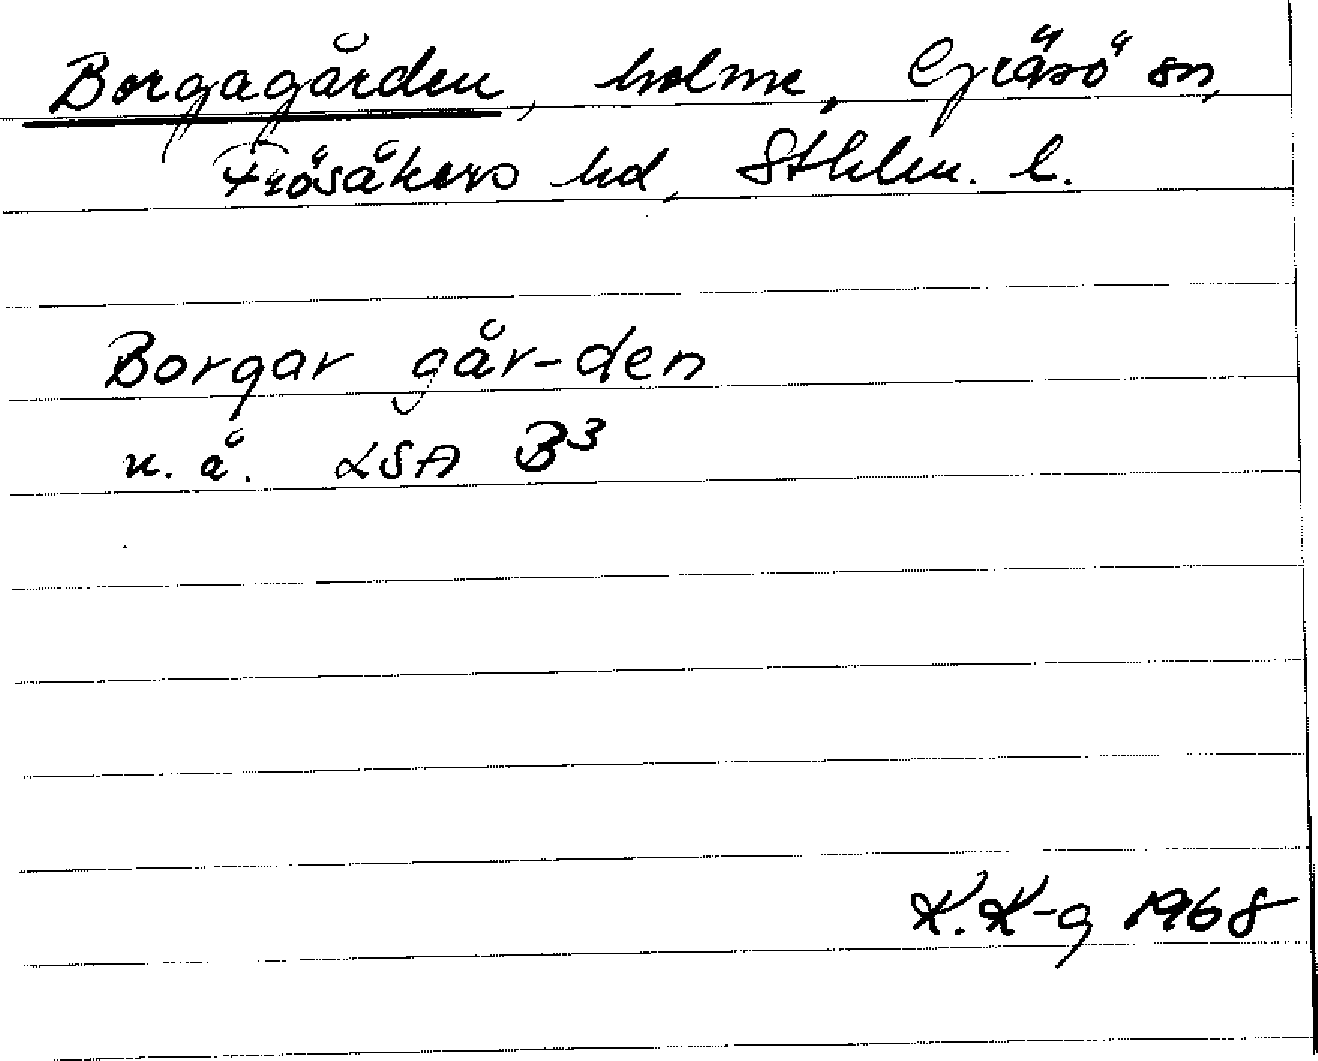 Borgagården, holme, Gräsö sn,
Frösåkers hd, Sthlm. l.
Borgar går-den
u. å. LSA B3
K. K-g 1968